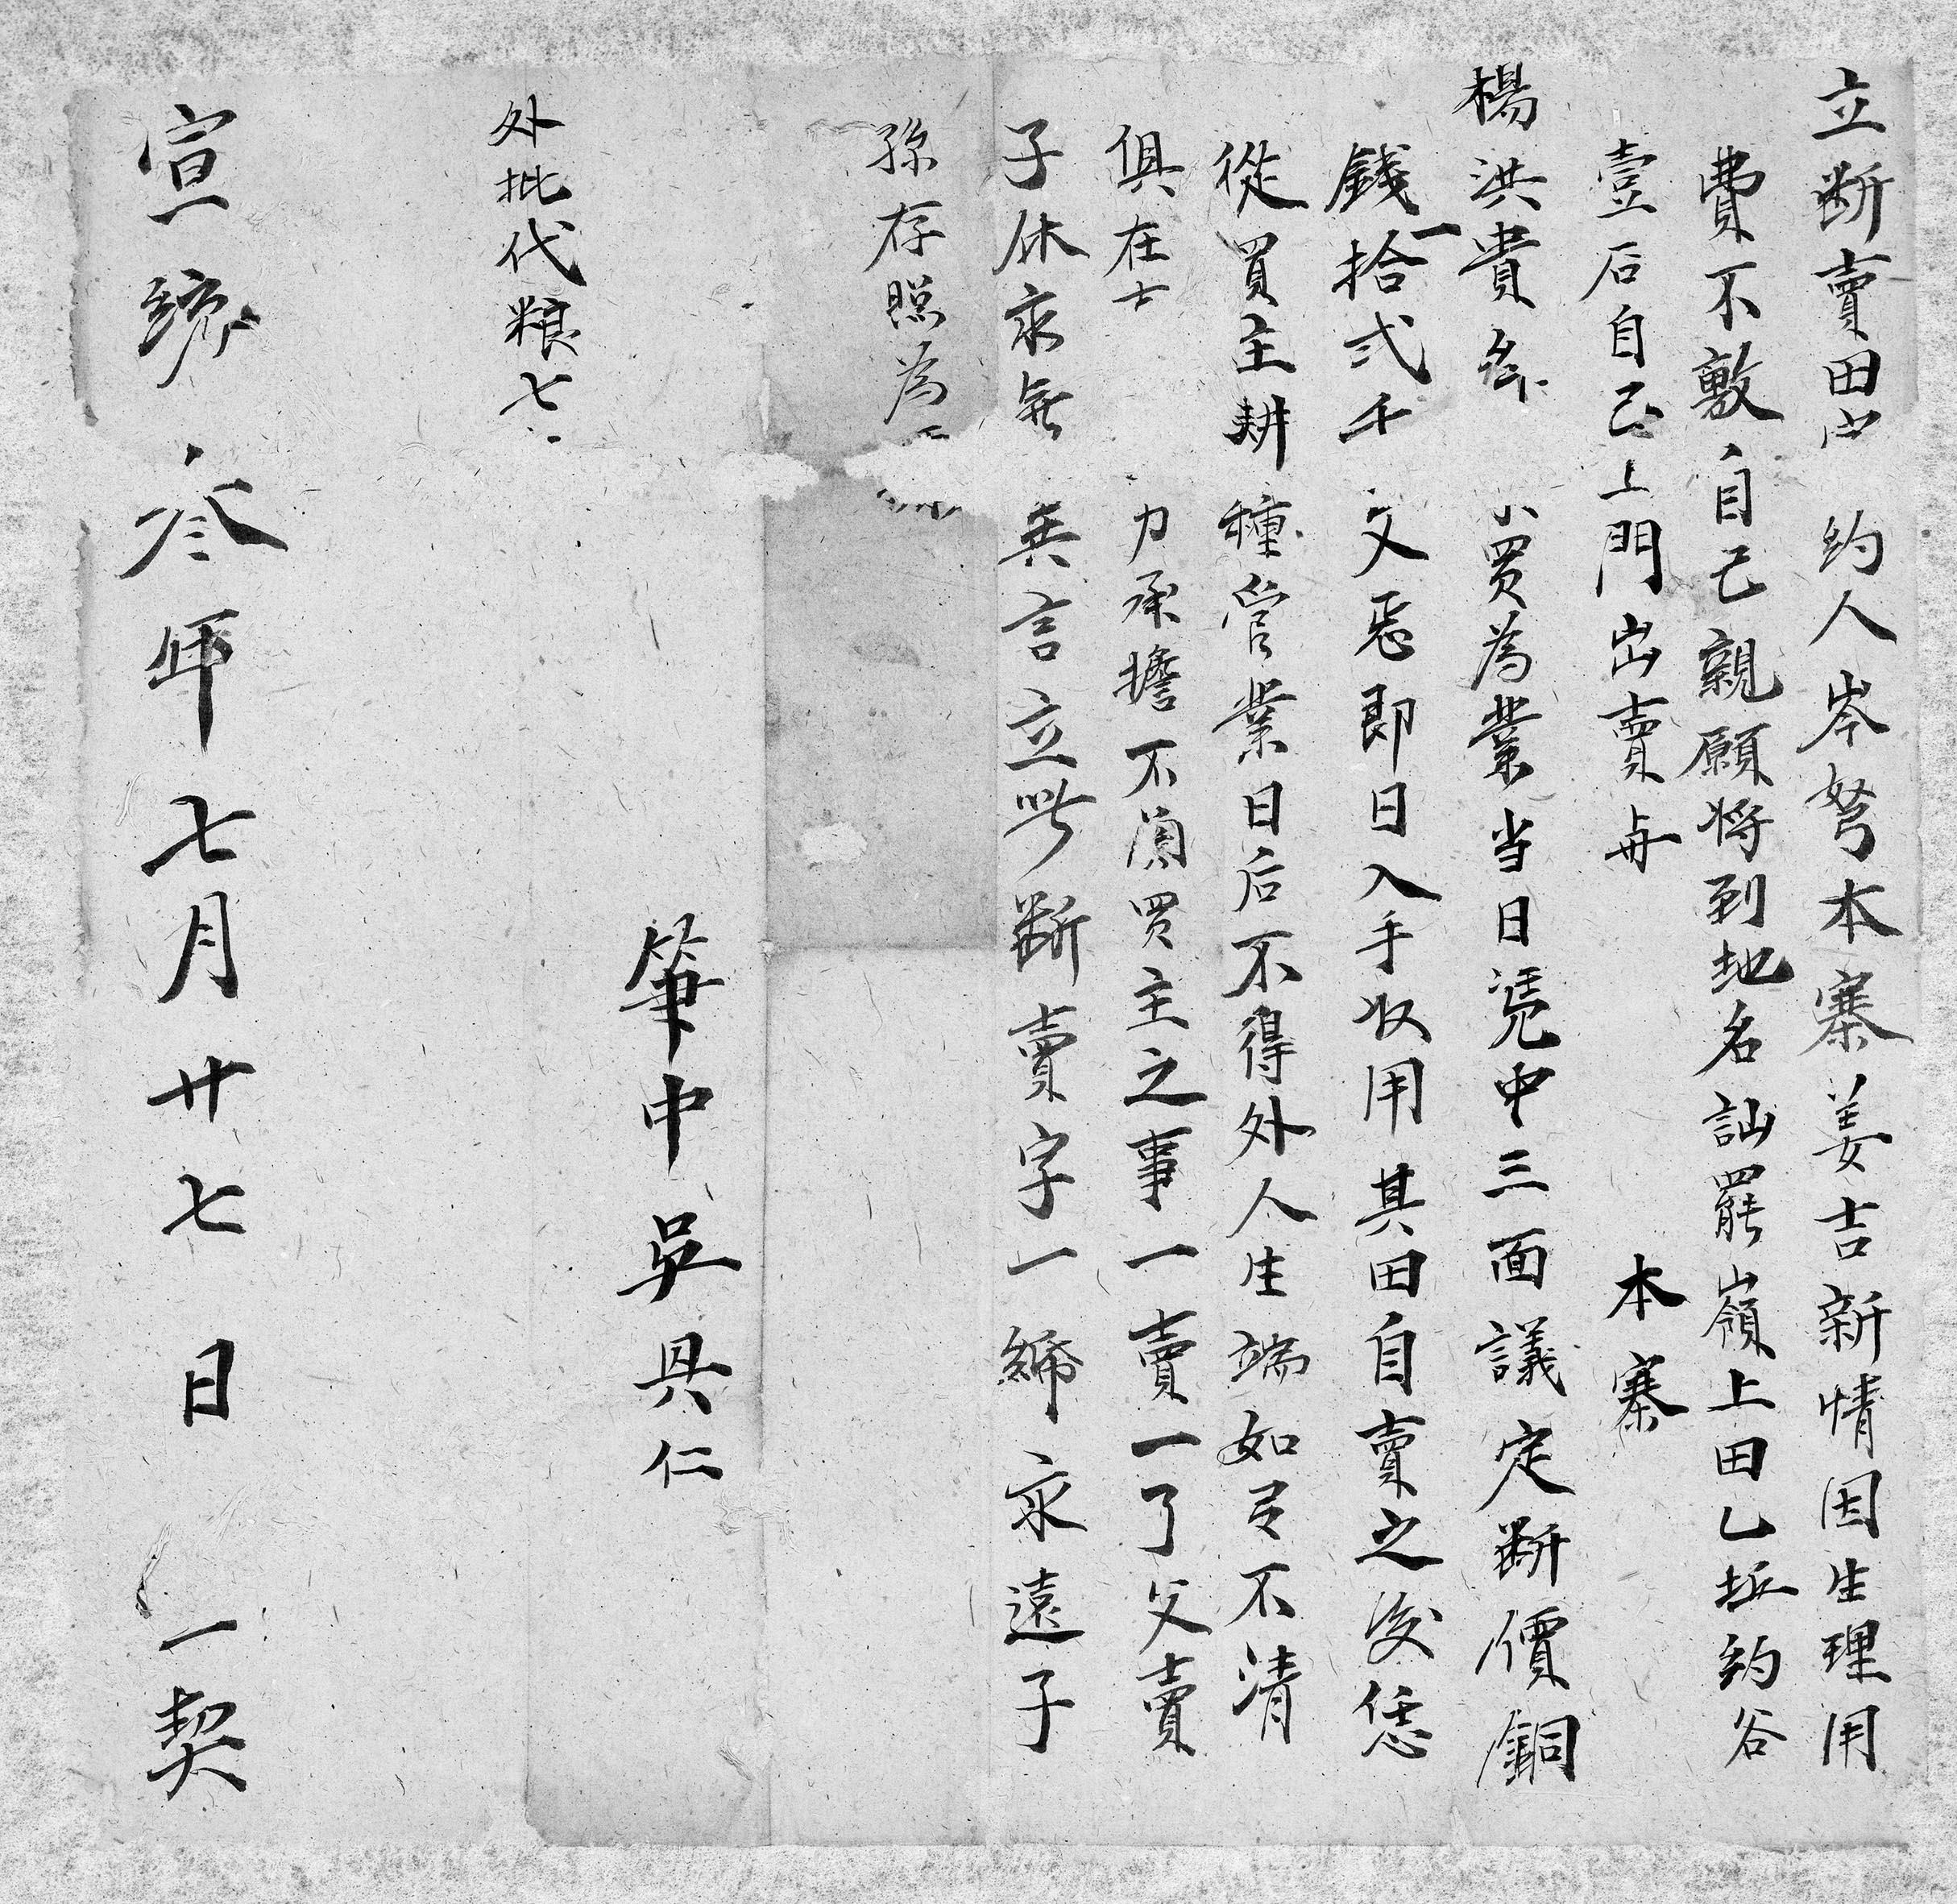 立断賣田 約人岑弩本寨姜吉新情因生理用
費不敷自己親願将到地名訕罷嶺上田乙坵約谷
壹后自己上門出賣與 本寨
楊洪貴 買為業当日凴中三面議定断價銅
錢一拾弍千 文悉即日入手收用其田自賣之後恁
從買主耕種管業日后不得外人生端如言不清
俱在 力承擔不須買主之事一賣一了父賣
子休永無異言立此断賣字一㷌永遠子
孫存照為
筆中吳具仁
外批代粮七
宣統叁年七月廿七日 一契